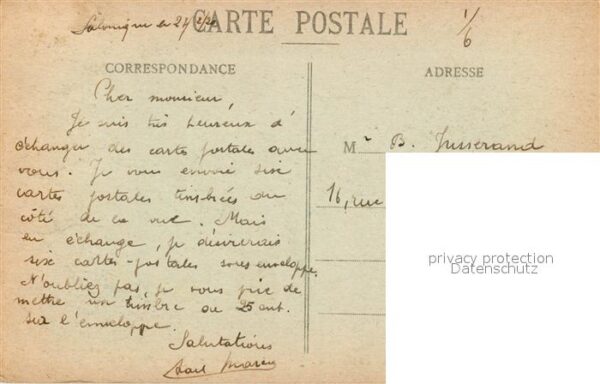 Salonique le 21/2/20
CARTE POSTALE
1/6
CORRESPONDANCE
ADRESSE
Cher monsieur,
Je suis très heureux d'
échanger des cartes postales avec
vous. Je vous envoie six
cartes postales timbrées du
côté de la vue. Mais
en échange, je désirerais
six cartes-postales sous enveloppe.
N'oubliez pas, je vous prie de
mettre un timbre de 25 cnt.
sur l'enveloppe.
Salutations
Mr B. Jusserand
16, rue
privacy protection
Datenschutz